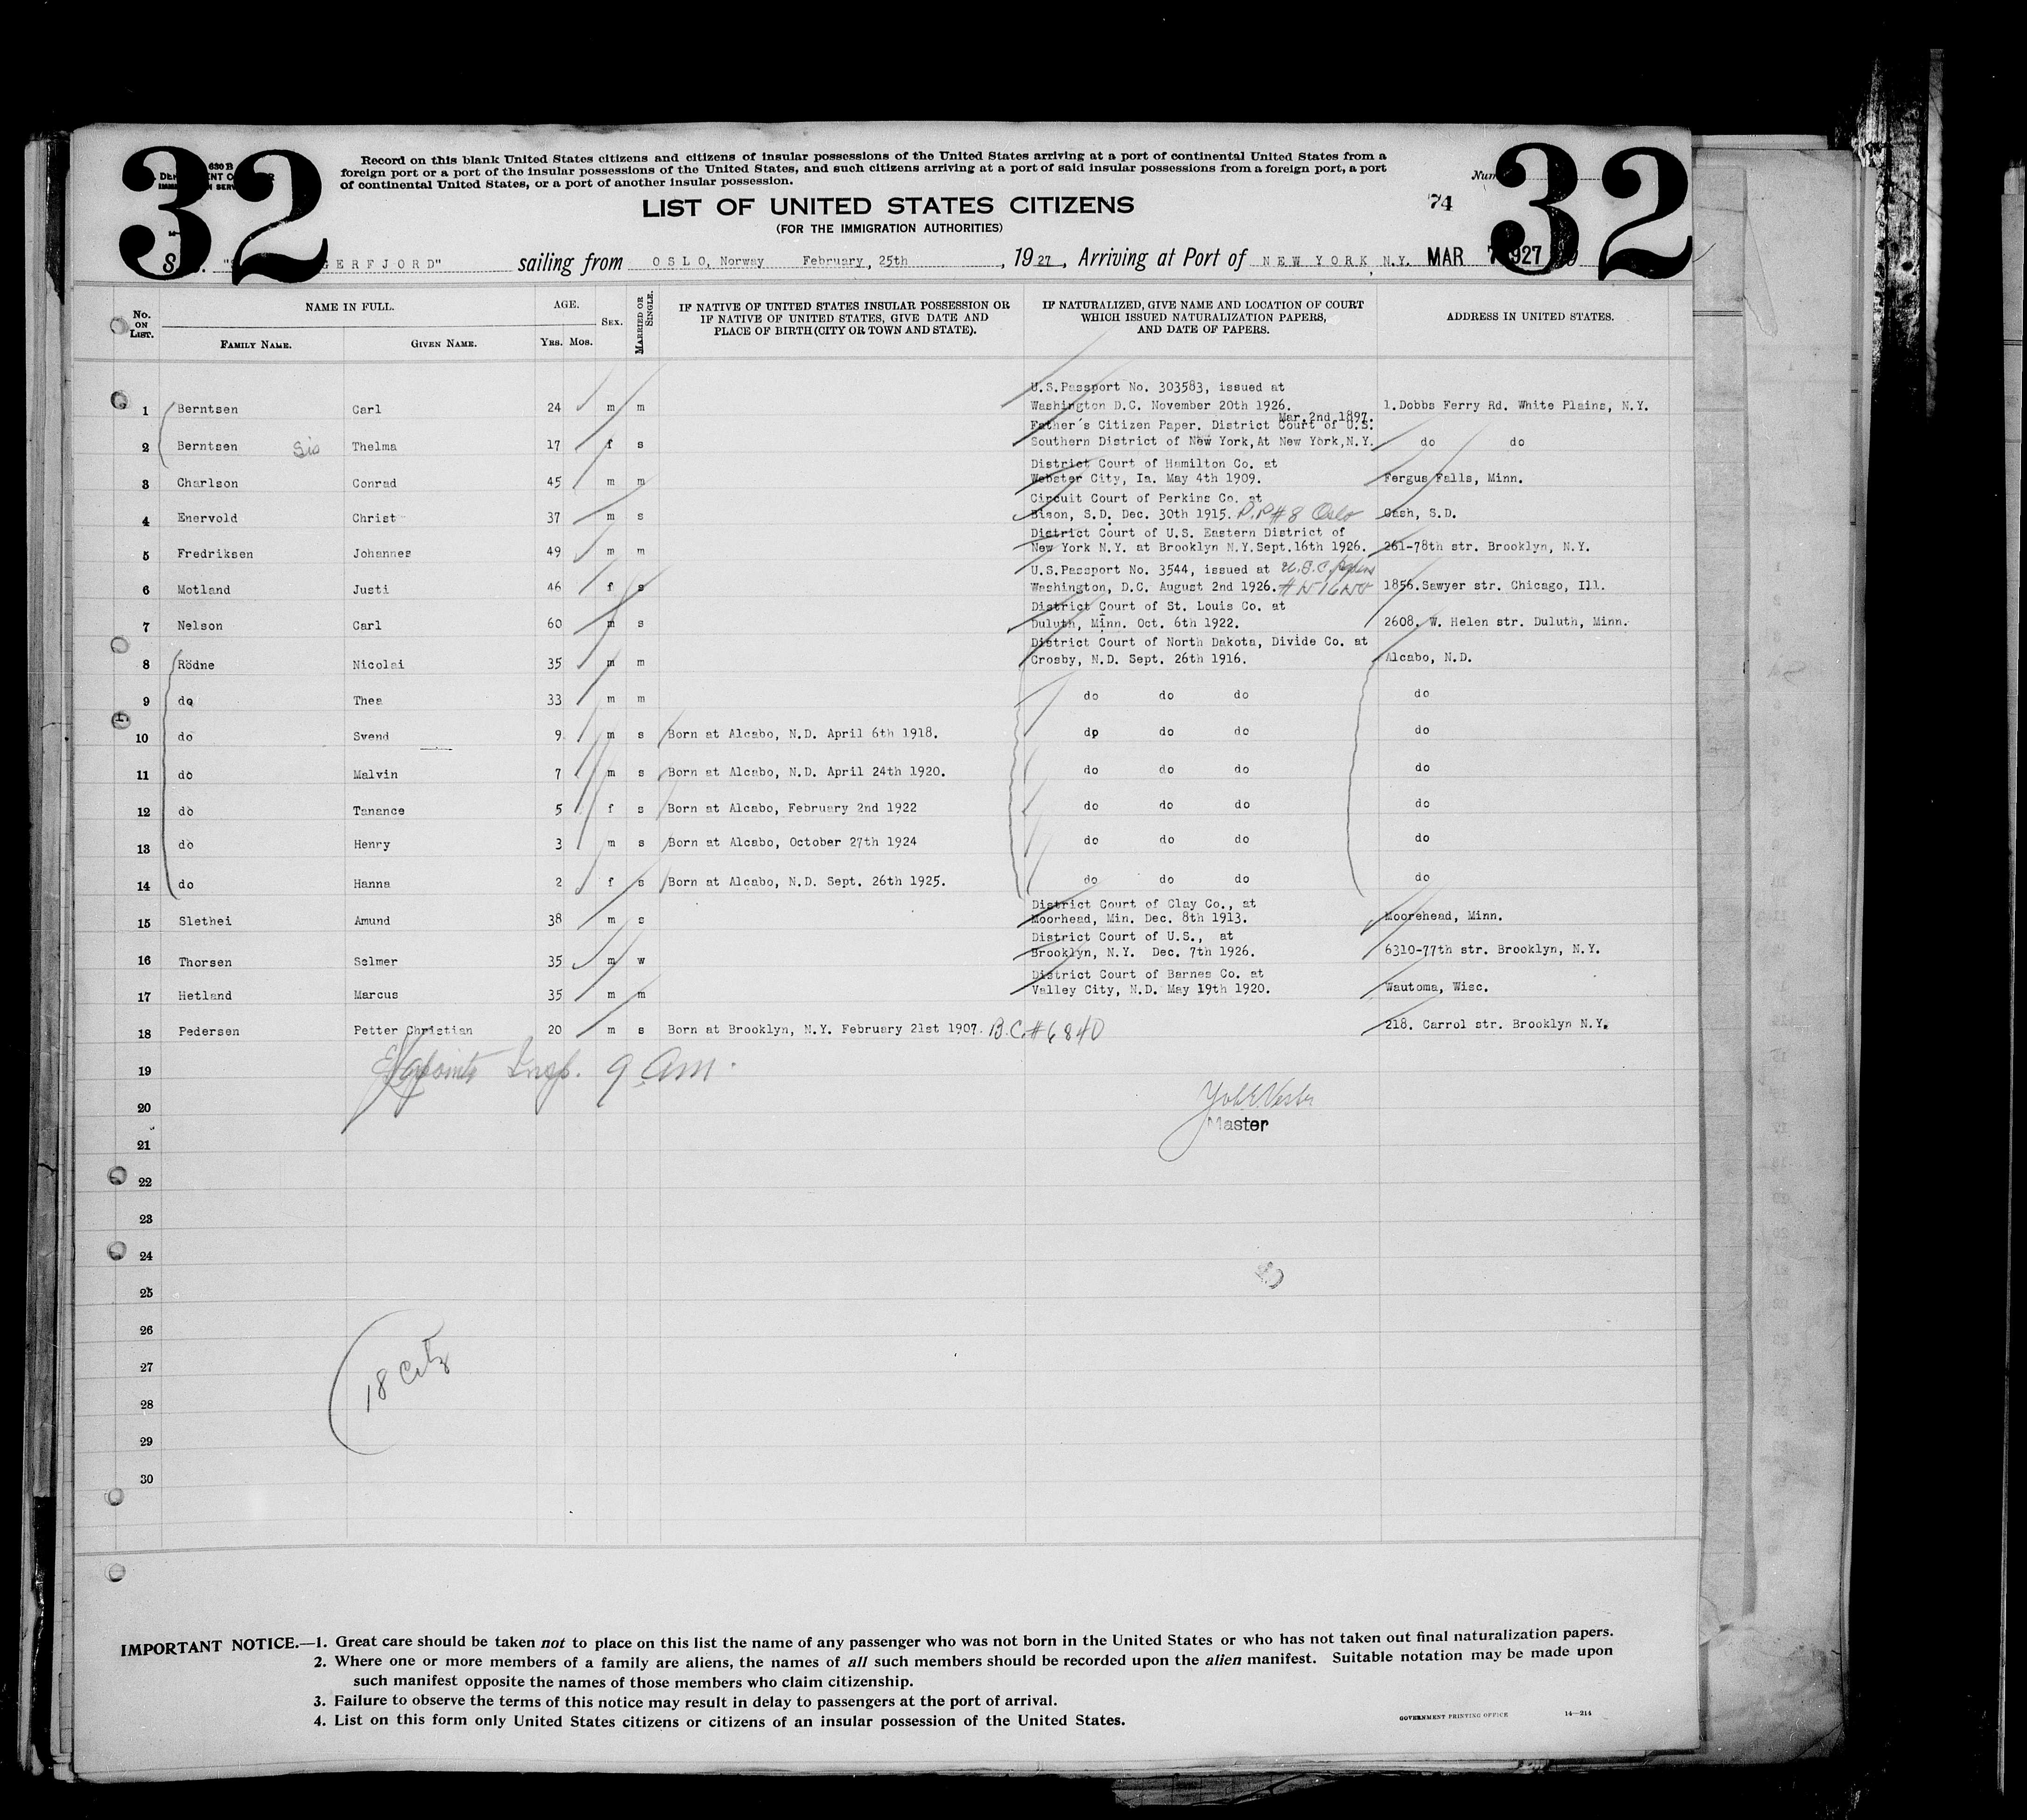 32
630 B
32
Record on this blank United States citizens and citizens of insular possessions of the United States arriving at a port of continental United States from a
foreign port or a port of the insular possessions of the United States, and such citizens arriving at a port of said insular possessions from a foreign port, a port
of continental United States, or a port of another insular possession.
LIST OF UNITED STATES CITIZENS
74
(FOR THE IMMIGRATION AUTHORITIES)
GERFJORD" sailing from OSLO, Norway February, 25th, 1927, Arriving at Port of NEW YORK, N.Y. MAR 7 1927
No. ON LIST. NAME IN FULL. AGE. SEX. MARRIED OR SINGLE. IF NATIVE OF UNITED STATES INSULAR POSSESSION OR IF NATIVE OF UNITED STATES, GIVE DATE AND PLACE OF BIRTH (CITY OR TOWN AND STATE). IF NATURALIZED, GIVE NAME AND LOCATION OF COURT WHICH ISSUED NATURALIZATION PAPERS, AND DATE OF PAPERS. ADDRESS IN UNITED STATES.
FAMILY NAME. GIVEN NAME. YRS. MOS.
U.S.Passport No. 303583, issued at
1 Berntsen Carl 24 m m Washington D.C. November 20th 1926. 1.Dobbs Ferry Rd. White Plains, N.Y.
Mar. 2nd 1897.
Father's Citizen Paper. District Court of U.S.
2 Berntsen Sis Thelma 17 f s Southern District of New York, At New York, N.Y. do do
District Court of Hamilton Co. at
3 Charlson Conrad 45 m m Webster City, Ia. May 4th 1909. Fergus Falls, Minn.
Circuit Court of Perkins Co. at
4 Enervold Christ 37 m s Bison, S.D. Dec. 30th 1915. P.P.#8 Oslo Cash, S.D.
District Court of U.S. Eastern District of
5 Fredriksen Johannes 49 m m New York N.Y. at Brooklyn N.Y. Sept. 16th 1926. 261-78th str. Brooklyn, N.Y.
U.S.Passport No. 3544, issued at U.S.C.
6 Motland Justi 46 f s Washington, D.C. August 2nd 1926. 1856.Sawyer str. Chicago, Ill.
District Court of St. Louis Co. at
7 Nelson Carl 60 m s Duluth, Minn. Oct. 6th 1922. 2608. W. Helen str. Duluth, Minn.
District Court of North Dakota, Divide Co. at
8 Rödne Nicolai 35 m m Crosby, N.D. Sept. 26th 1916. Alcabo, N.D.
9 do Thea 33 m m do do do do
10 do Svend 9 m s Born at Alcabo, N.D. April 6th 1918. dp do do do
11 do Malvin 7 m s Born at Alcabo, N.D. April 24th 1920. do do do do
12 do Tanance 5 f s Born at Alcabo, February 2nd 1922 do do do do
13 do Henry 3 m s Born at Alcabo, October 27th 1924 do do do do
14 do Hanna 2 f s Born at Alcabo, N.D. Sept. 26th 1925. do do do do
District Court of Clay Co., at
15 Slethei Amund 38 m s Moorhead, Min. Dec. 8th 1913. Moorehead, Minn.
District Court of U.S., at
16 Thorsen Selmer 35 m w Brooklyn, N.Y. Dec. 7th 1926. 6310-77th str. Brooklyn, N.Y.
District Court of Barnes Co. at
17 Hetland Marcus 35 m m Valley City, N.D. May 19th 1920. Wautoma, Wisc.
18 Pedersen Petter Christian 20 m s Born at Brooklyn, N.Y. February 21st 1907. B.C.#6840 218. Carrol str. Brooklyn N.Y.
19 Insp. 9 am.
20
Master
21
22
23
24
25
26
27
18 Citz
28
29
30
IMPORTANT NOTICE.—1. Great care should be taken not to place on this list the name of any passenger who was not born in the United States or who has not taken out final naturalization papers.
2. Where one or more members of a family are aliens, the names of all such members should be recorded upon the alien manifest. Suitable notation may be made upon
such manifest opposite the names of those members who claim citizenship.
3. Failure to observe the terms of this notice may result in delay to passengers at the port of arrival.
4. List on this form only United States citizens or citizens of an insular possession of the United States.
GOVERNMENT PRINTING OFFICE 14—214